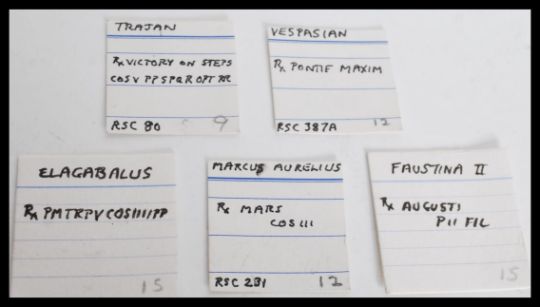 TRAJAN
Rx VICTORY ON STEPS
COS V PP SPQR OPT PR
RSC 80 9
VESPASIAN
Rx PONTIF MAXIM
RSC 387A 12
ELAGABALUS
Rx PMTRPVCOSIIIIPP
15
MARCUS AURELIUS
Rx MARS
COS III
RSC 231 12
FAUSTINA II
Rx AUGUSTI
PII FIL
15